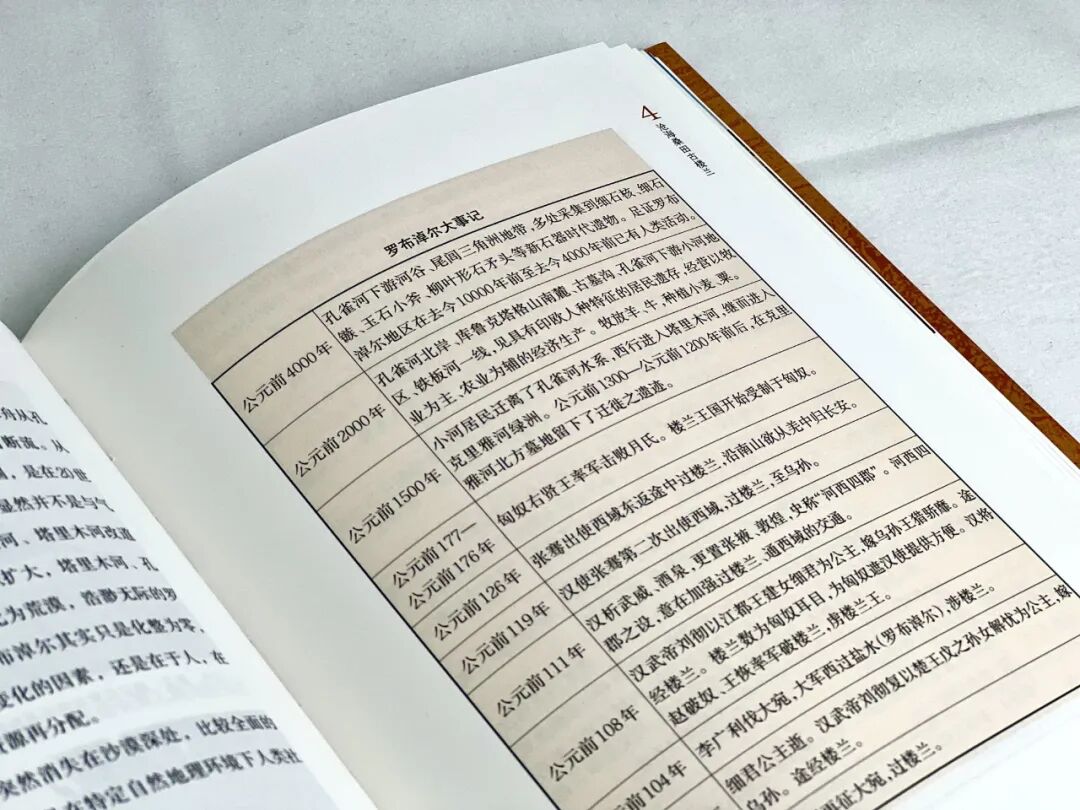 舟从孔
断流。从
，是在20世
显然并不是与气
河、塔里木河改道
扩大，塔里木河、孔
化为荒漠，浩渺无际的罗
布淖尔其实只是化整为零，
变化的因素，还是在于人，在
源再分配。
突然消失在沙漠深处，比较全面的
在特定自然地理环境下人类社
4
沧海桑田古楼兰
罗布淖尔大事记
公元前4000年
孔雀河下游河谷、尾闾三角洲地带，多处采集到细石核、细石
镞、玉石小斧、柳叶形石矛头等新石器时代遗物。足证罗布
淖尔地区在去今10000年前至去今4000年前已有人类活动。
公元前2000年
孔雀河北岸、库鲁克塔格山南麓、古墓沟、孔雀河下游小河地
区、铁板河一线，见具有印欧人种特征的居民遗存，经营以牧
业为主、农业为辅的经济生产。牧放羊、牛，种植小麦、粟。
公元前1500年
小河居民迁离了孔雀河水系，西行进入塔里木河，继而进入
克里雅河绿洲。公元前1300—公元前1200年前后，在克里
雅河北方墓地留下了迁徙之遗迹。
公元前177—
公元前176年
匈奴右贤王率军击败月氏。楼兰王国开始受制于匈奴。
公元前126年
张骞出使西域东返途中过楼兰，沿南山欲从羌中归长安。
公元前119年
汉使张骞第二次出使西域，过楼兰，至乌孙。
公元前111年
汉析武威、酒泉，更置张掖、敦煌，史称“河西四郡”。河西四
郡之设，意在加强过楼兰、通西域的交通。
公元前108年
汉武帝刘彻以江都王建女细君为公主，嫁乌孙王猎骄靡。途
经楼兰。楼兰数为匈奴耳目，为匈奴遮汉使提供方便。汉将
赵破奴、王恢率军破楼兰，虏楼兰王。
公元前104年
李广利伐大宛，大军西过盐水（罗布淖尔），涉楼兰。
细君公主逝。汉武帝刘彻复以楚王戊之孙女解忧为公主，嫁
乌孙。途经楼兰。
征大宛，过楼兰。